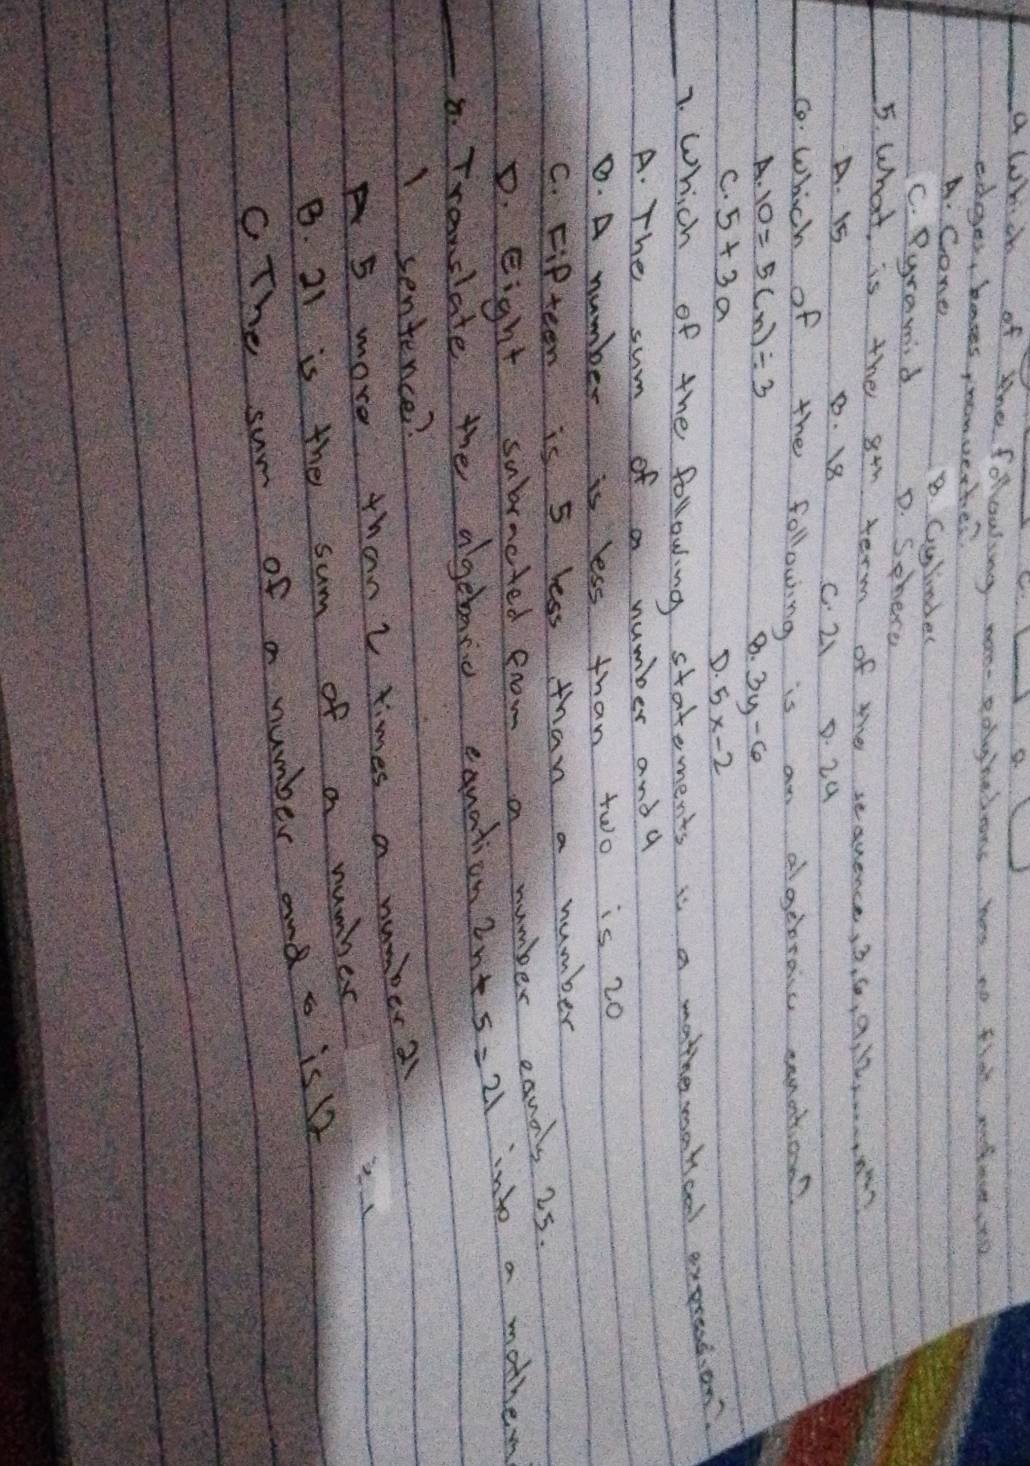 Which of the following non-polyhedrons has no flat surface, no
edges, bases, no
A. Cone B. Cylinder
C. Pyramid D. Sphere
5. What is the 8th term of the sequence, 3, 6, 9, 12,
A. 15 B. 18 C. 21 D. 24
6. Which of the following is an algebraic equation?
A. 10 = 5(n) ÷ 3 B. 3y - 6
C. 5 + 3a D. 5x - 2
7. Which of the following statements is a mathematical expression?
A. The sum of a number and 4
B. A number is less than two is 20
C. Fifteen is 5 less than a number
D. Eight subracted from a number equals 25.
8. Translate the algebraic equation 2n + 5 = 21 into a mathem
1 sentence?
A 5 more than 2 times a number 21
B. 21 is the sum of a number
C The sum of a number and is 17